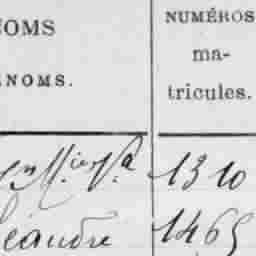 NOMS
NOMS.
NUMÉROS
ma-
tricules.
1310
léandre 1465